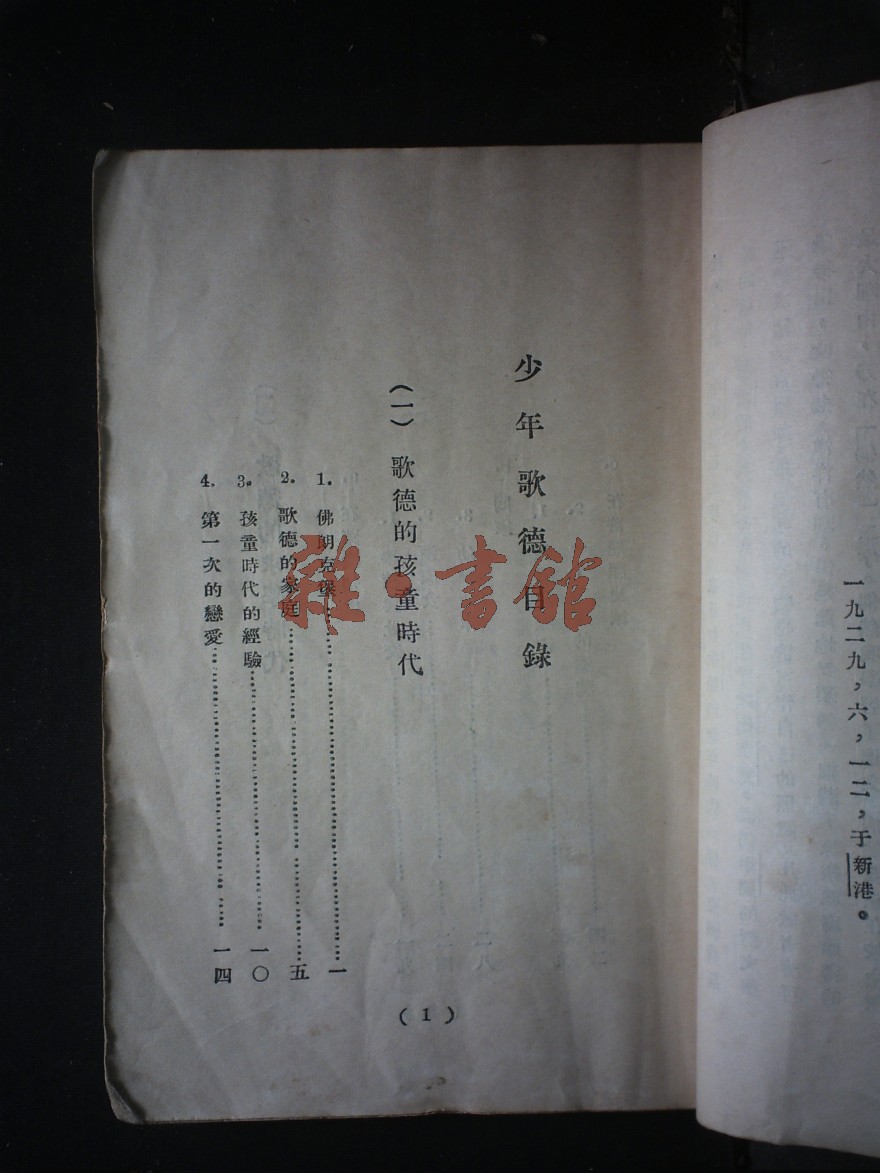 一九二九，六，一二，于新港。
少年歌德目錄
（一）歌德的孩童時代
1. 佛朗克堡 一
2. 歌德的家庭 五
3. 孩童時代的經驗 一〇
4. 第一次的戀愛 一四
(1)
雜·書館